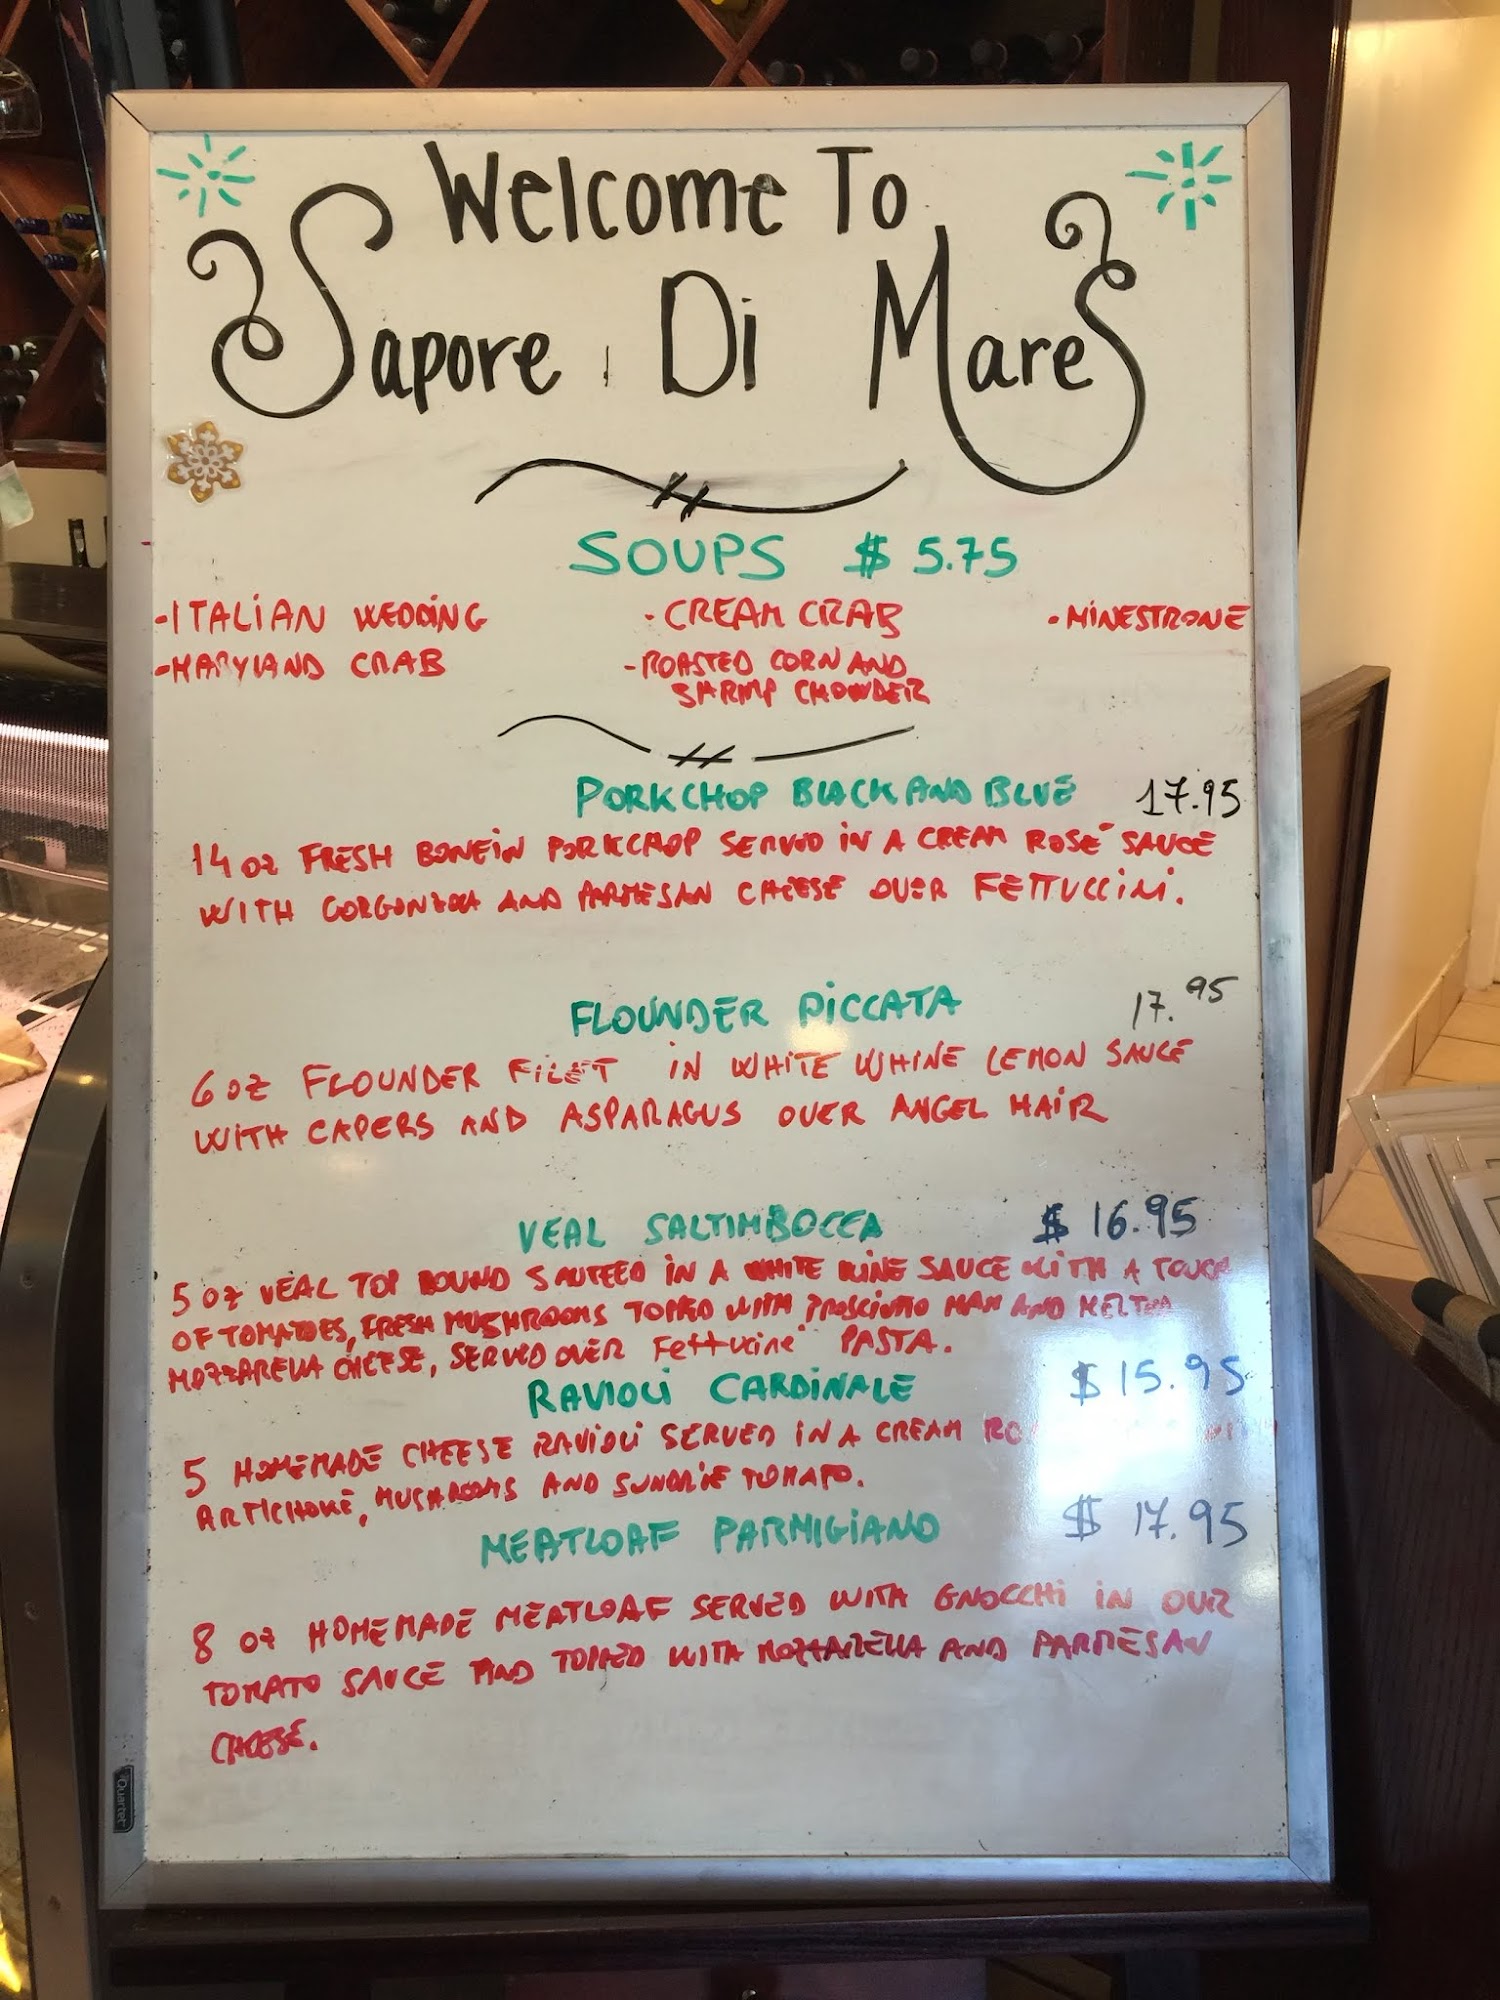 Welcome To
Sapore Di Mare
SOUPS $5.75
-ITALIAN WEDDING -CREAM CRAB -MINESTRONE
-MARYLAND CRAB -ROASTED CORN AND
SHRIMP CHOWDER
PORKCHOP BLACK AND BLUE 17.95
14 oz FRESH BONEIN PORKCHOP SERVED IN A CREAM ROSÉ SAUCE
WITH GORGONZOLA AND PARMESAN CHEESE OVER FETTUCCINI.
FLOUNDER PICCATA 17.95
6 oz FLOUNDER FILET IN WHITE WHINE LEMON SAUCE
WITH CAPERS AND ASPARAGUS OVER ANGEL HAIR
VEAL SALTIMBOCCA $16.95
5 oz VEAL TOP ROUND SAUTEED IN A WHITE WINE SAUCE WITH A TOUCH
OF TOMATOES, FRESH MUSHROOMS TOPPED WITH PROSCIUTTO HAM AND MELTED
MOZZARELLA CHEESE, SERVED OVER Fettucine PASTA.
RAVIOLI CARDINALE $15.95
5 HOMEMADE CHEESE RAVIOLI SERVED IN A CREAM WITH
ARTICHOKE, MUSHROOMS AND SUNDRIE TOMATO.
MEATLOAF PARMIGIANO $17.95
8 oz HOMEMADE MEATLOAF SERVED WITH GNOCCHI IN OUR
TOMATO SAUCE AND TOPPED WITH MOZZARELLA AND PARMESAN
CHEESE.
Quartet